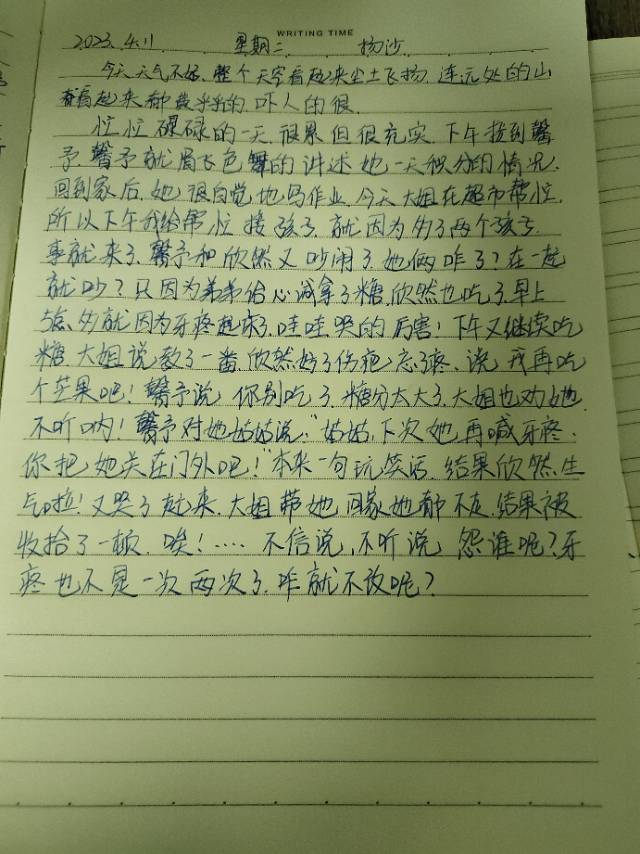 WRITING TIME
2023.4.11 星期二 扬沙
今天天气不好、整个天空看起来尘土飞扬、连远处的山
看起来都是乎乎的、吓人的很、
忙忙碌碌的一天、很累但很充实、下午接到馨
予、馨予就眉飞色舞的讲述她一天积分的情况、
回到家后、她很自觉地写作业、今天大姐在超市帮忙、
所以下午我给帮忙接孩子、就因为多了两个孩子、
事就来了、馨予和欣然又吵闹了、她俩咋了？在一起
就吵？只因为弟弟给心诚拿了糖、欣然也吃了、早上
就因为牙疼起床了、哇哇哭的厉害！下午又继续吃
糖、大姐说教了一番、欣然好了伤疤忘了疼、说、我再吃
个苹果吧！馨予说、你别吃了、糖分太大了、大姐也劝她、
不听呐！馨予对她姑姑说："姑姑、下次她再喊牙疼、
你把她关在门外吧！"本来一句玩笑话、结果欣然生
气啦！又哭了起来、大姐带她回家她都不走、结果被
收拾了一顿、唉！…… 不信说、不听说、怨谁呢？牙
疼也不是一次两次了、咋就不改呢？